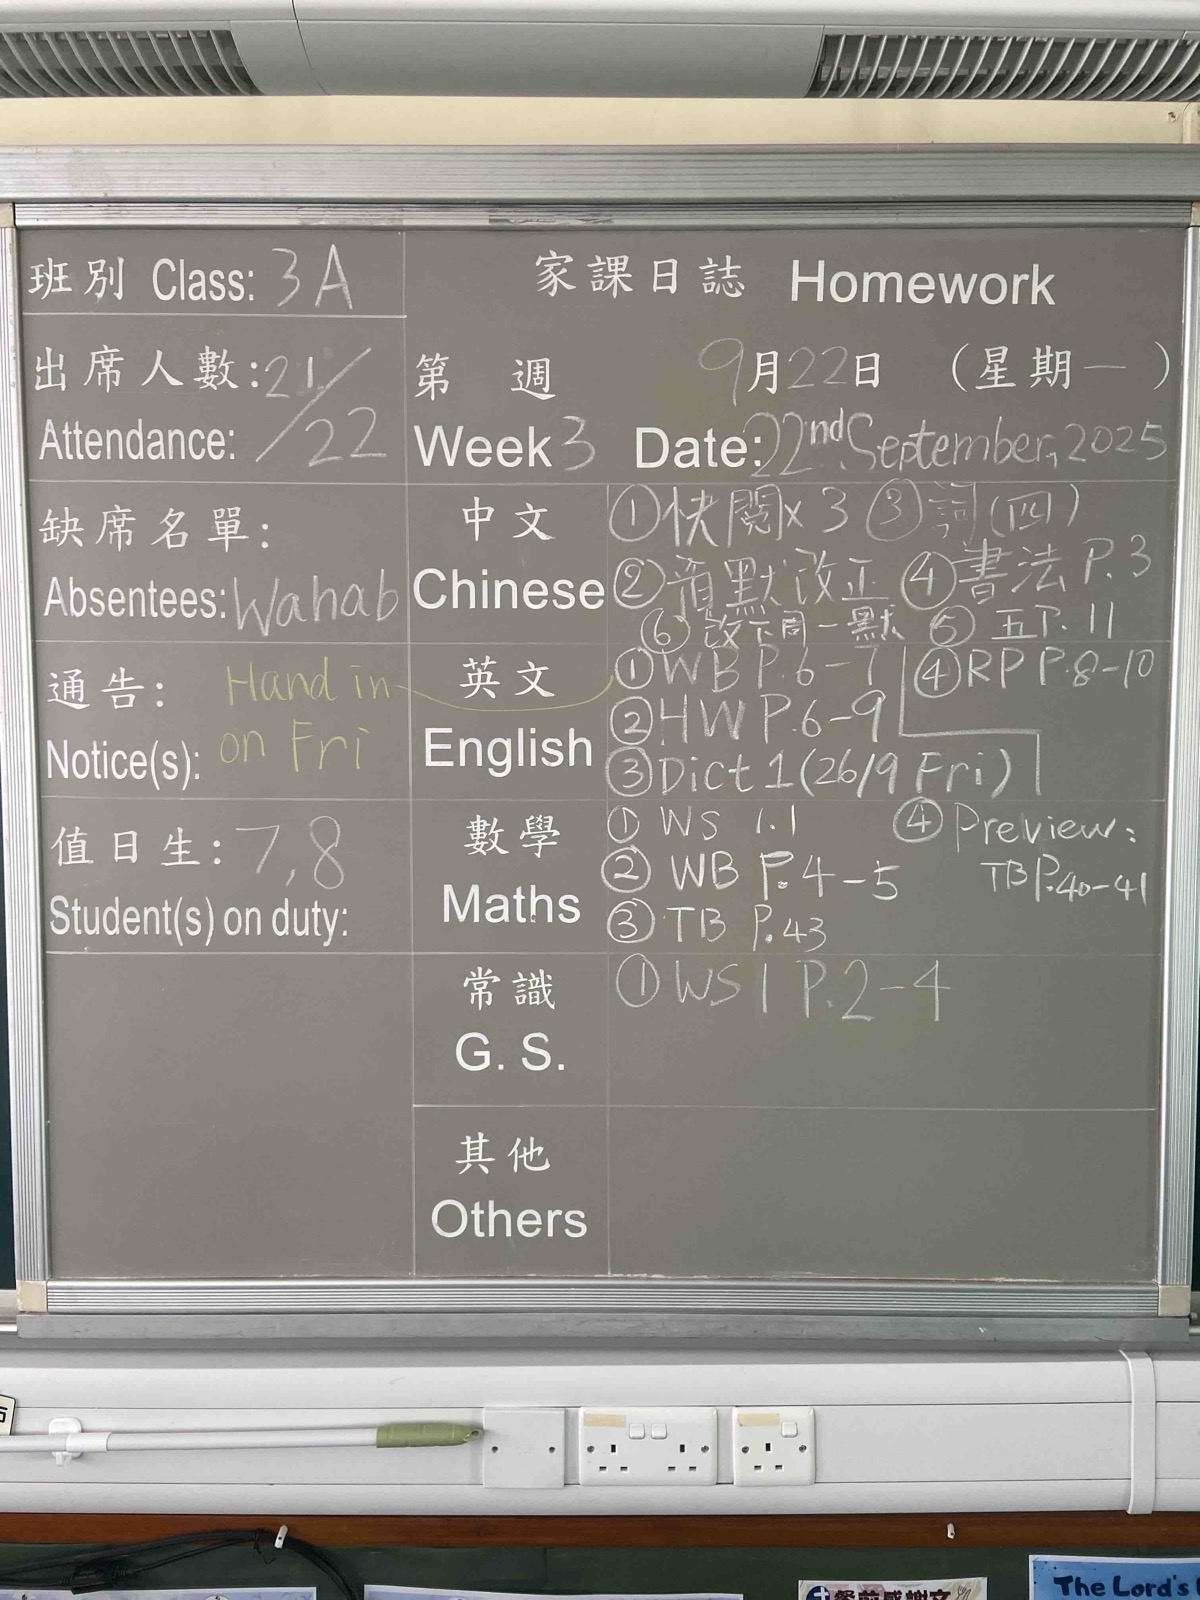 班別 Class: 3A
出席人數: 21/22
Attendance:
缺席名單:
Absentees: Wahab
通告: Hand in
Notice(s): on Fri
值日生: 7,8
Student(s) on duty:
家課日誌 Homework
第 週 9月22日 (星期一)
Week 3 Date: 22nd September, 2025
中文
Chinese
①快閱x3 ③詞(四)
②預默改正 ④書法 P.3
⑥改下周一默 ⑤五P.11
英文
English
①WB P.6-7 ④RP P.8-10
②HW P.6-9
③Dict 1 (26/9 Fri)
數學
Maths
① WS 1.1 ④ Preview:
② WB P.4-5 TB P.40-41
③ TB P.43
常識
G. S.
① WS 1 P.2-4
其他
Others
餐前感謝文
The Lord's